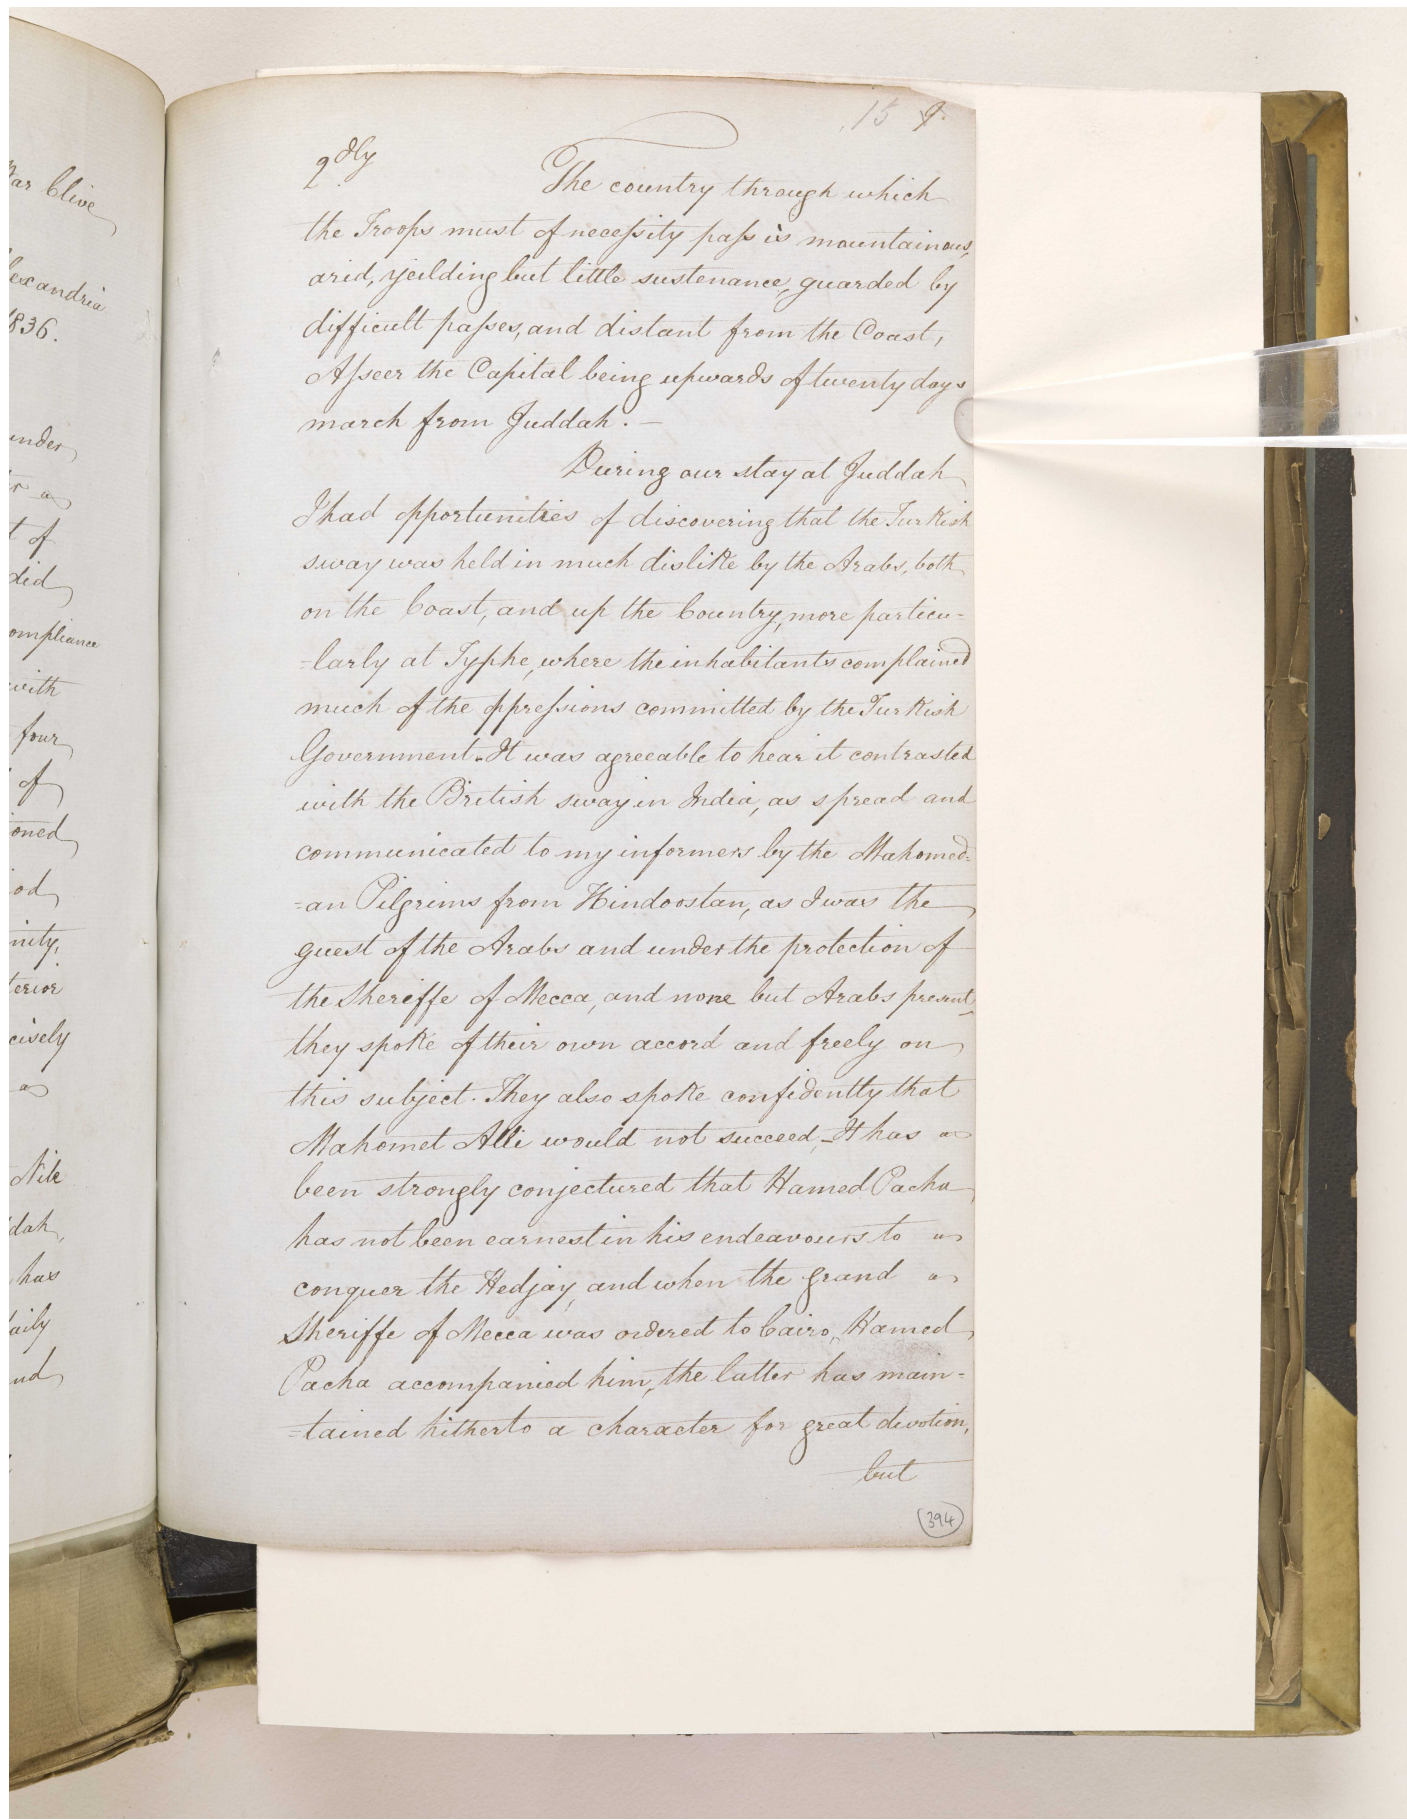 ar Clive
lexandria
1836.
under
r a
t of
did
ompliance
with
four
of
oned
iod
nity,
terior
cisely
a
Nile
dah,
has
aily
nd
15 9.
2dly The country through which
the Troops must of necessity pass is mountainous,
arid, yeilding but little sustenance, guarded by
difficult passes, and distant from the Coast,
Asseer the Capital being upwards of twenty days
march from Juddah. —
During our stay at Juddah
I had opportunities of discovering that the Turkish
sway was held in much dislike by the Arabs, both
on the Coast, and up the Country, more particu=
=larly at Typhe, where the inhabitants complained
much of the oppressions committed by the Turkish
Government. It was agreeable to hear it contrasted
with the British sway in India, as spread and
communicated to my informers by the Mahomed=
=an Pilgrims from Hindoostan, as I was the
guest of the Arabs and under the protection of
the Sheriffe of Mecca, and none but Arabs present,
they spoke of their own accord and freely on
this subject. They also spoke confidently that
Mahomet Alli would not succeed, — It has
been strongly conjectured that Hamed Pacha
has not been earnest in his endeavours to
conquer the Hedjay, and when the grand
Sheriffe of Mecca was ordered to Cairo, Hamed
Pacha accompanied him, the latter has main=
=tained hitherto a character for great devotion,
but
394